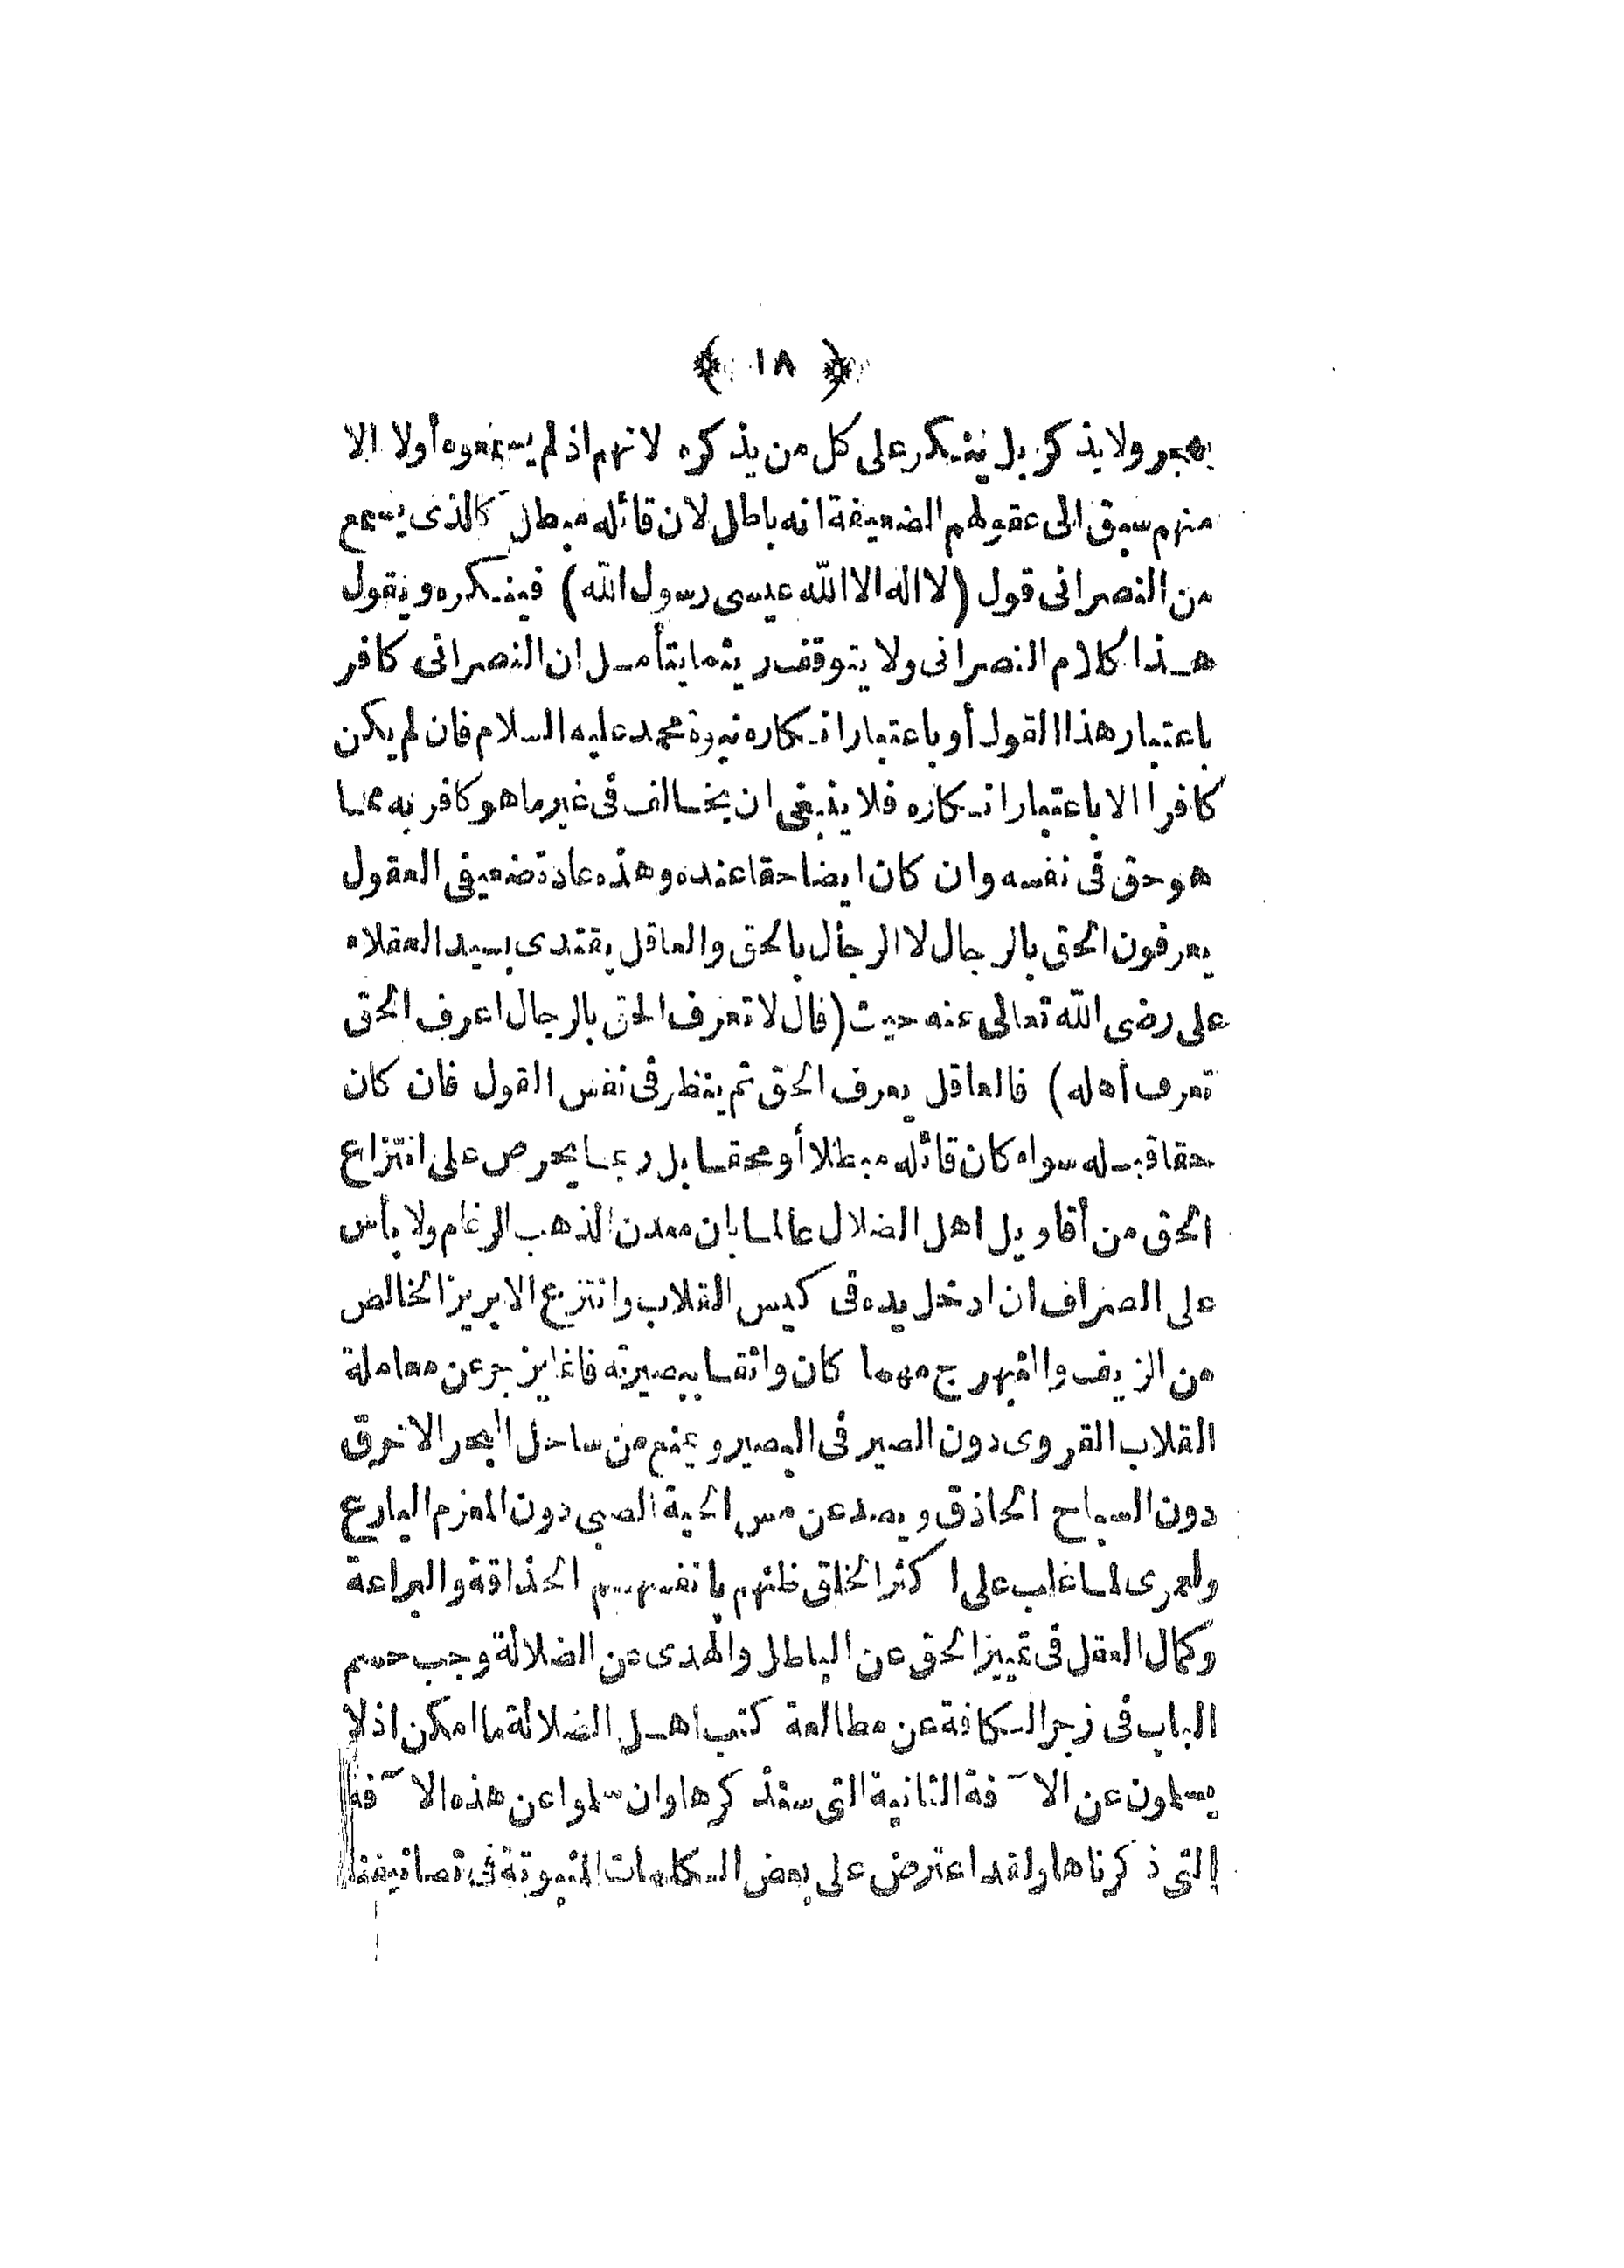 ﴿ ١٨ ﴾
يهجر ولا يذكر بل ينكر على كل من يذكره لانهم اذ لم يسمعوه أولا الا
منهم سبق الى عقولهم الضعيفة انه باطل لان قائله مبطل كالذى يسمع
من النصرانى قول (لا اله الا الله عيسى رسول الله) فينكره ويقول
هذا كلام النصرانى ولا يتوقف ريثما يتأمل ان النصرانى كافر
باعتبار هذا القول أو باعتبار انكاره نبوة محمد عليه السلام فان لم يكن
كافرا الا باعتبار انكاره فلا ينبغى ان يخالف فى غير ما هو كافر به مما
هو حق فى نفسه وان كان ايضا حقا عنده وهذه عادة ضعيفى العقول
يعرفون الحق بالرجال لا الرجال بالحق والعاقل يقتدى بسيد العقلاء
على رضى الله تعالى عنه حيث (قال لا تعرف الحق بالرجال اعرف الحق
تعرف أهله) فالعاقل يعرف الحق ثم ينظر فى نفس القول فان كان
حقا قبله سواء كان قائله مبطلا أو محقا بل ربما يحرص على انتزاع
الحق من أقاويل اهل الضلال عالما بان معدن الذهب الرغام ولا بأس
على الصراف ان ادخل يده فى كيس القلاب وانتزع الابريز الخالص
من الزيف والنبهرج مهما كان واثقا ببصيرته فانما يزجر عن معاملة
القلاب القروى دون الصيرفى البصير ويمنع من ساحل البحر الاخرق
دون السباح الحاذق ويصد عن مس الحية الصبى دون المعزم البارع
ولعمرى لما غلب على اكثر الخلق ظنهم بانفسهم الحذاقة والبراعة
وكمال العقل فى تمييز الحق عن الباطل والهدى عن الضلالة وجب حسم
الباب فى زجر الكافة عن مطالعة كتب اهل الضلالة ما امكن اذ لا
يسلمون عن الآفة الثانية التى سنذكرها وان سلموا عن هذه الآفة
التى ذكرناها ولقد اعترض على بعض الكلمات المثبوتة فى تصانيفنا